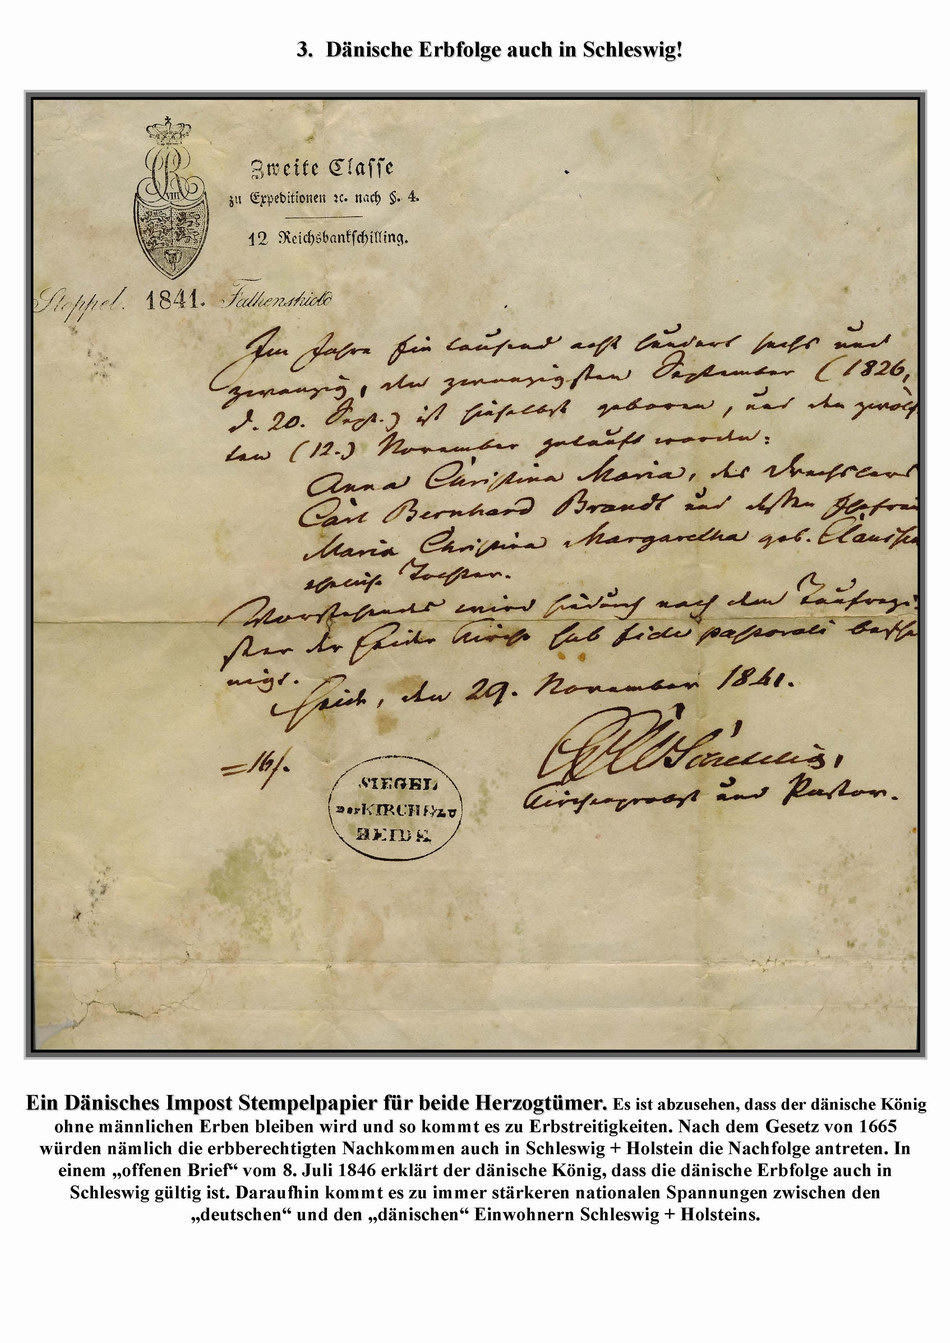 3. Dänische Erbfolge auch in Schleswig!
VIII
Zweite Classe
zu Expeditionen ꝛc. nach §. 4.
12 Reichsbankschilling.
Steppel. 1841. Falkenskiold
Im Jahre Ein tausend acht hundert sechs und
zwanzig, den zwanzigsten September (1826,
d. 20. Sept.) ist hieselbst geboren, und den zwölf
ten (12.) November getauft worden:
Anna Christina Maria, des Drechslers
Carl Bernhard Brandt und dessen Ehefrau
Maria Christina Margaretha geb. Claussen
eheliche Tochter.
Vorstehendes wird hiedurch nach dem Taufregi
ster der Heider Kirche sub fide pastorali besche
nigt.
Heide, den 29. November 1841.
=16/.
Kirchenprobst und Pastor.
SIEGEL
DER KIRCHE ZU
HEIDE
Ein Dänisches Impost Stempelpapier für beide Herzogtümer. Es ist abzusehen, dass der dänische König
ohne männlichen Erben bleiben wird und so kommt es zu Erbstreitigkeiten. Nach dem Gesetz von 1665
würden nämlich die erbberechtigten Nachkommen auch in Schleswig + Holstein die Nachfolge antreten. In
einem „offenen Brief“ vom 8. Juli 1846 erklärt der dänische König, dass die dänische Erbfolge auch in
Schleswig gültig ist. Daraufhin kommt es zu immer stärkeren nationalen Spannungen zwischen den
„deutschen“ und den „dänischen“ Einwohnern Schleswig + Holsteins.